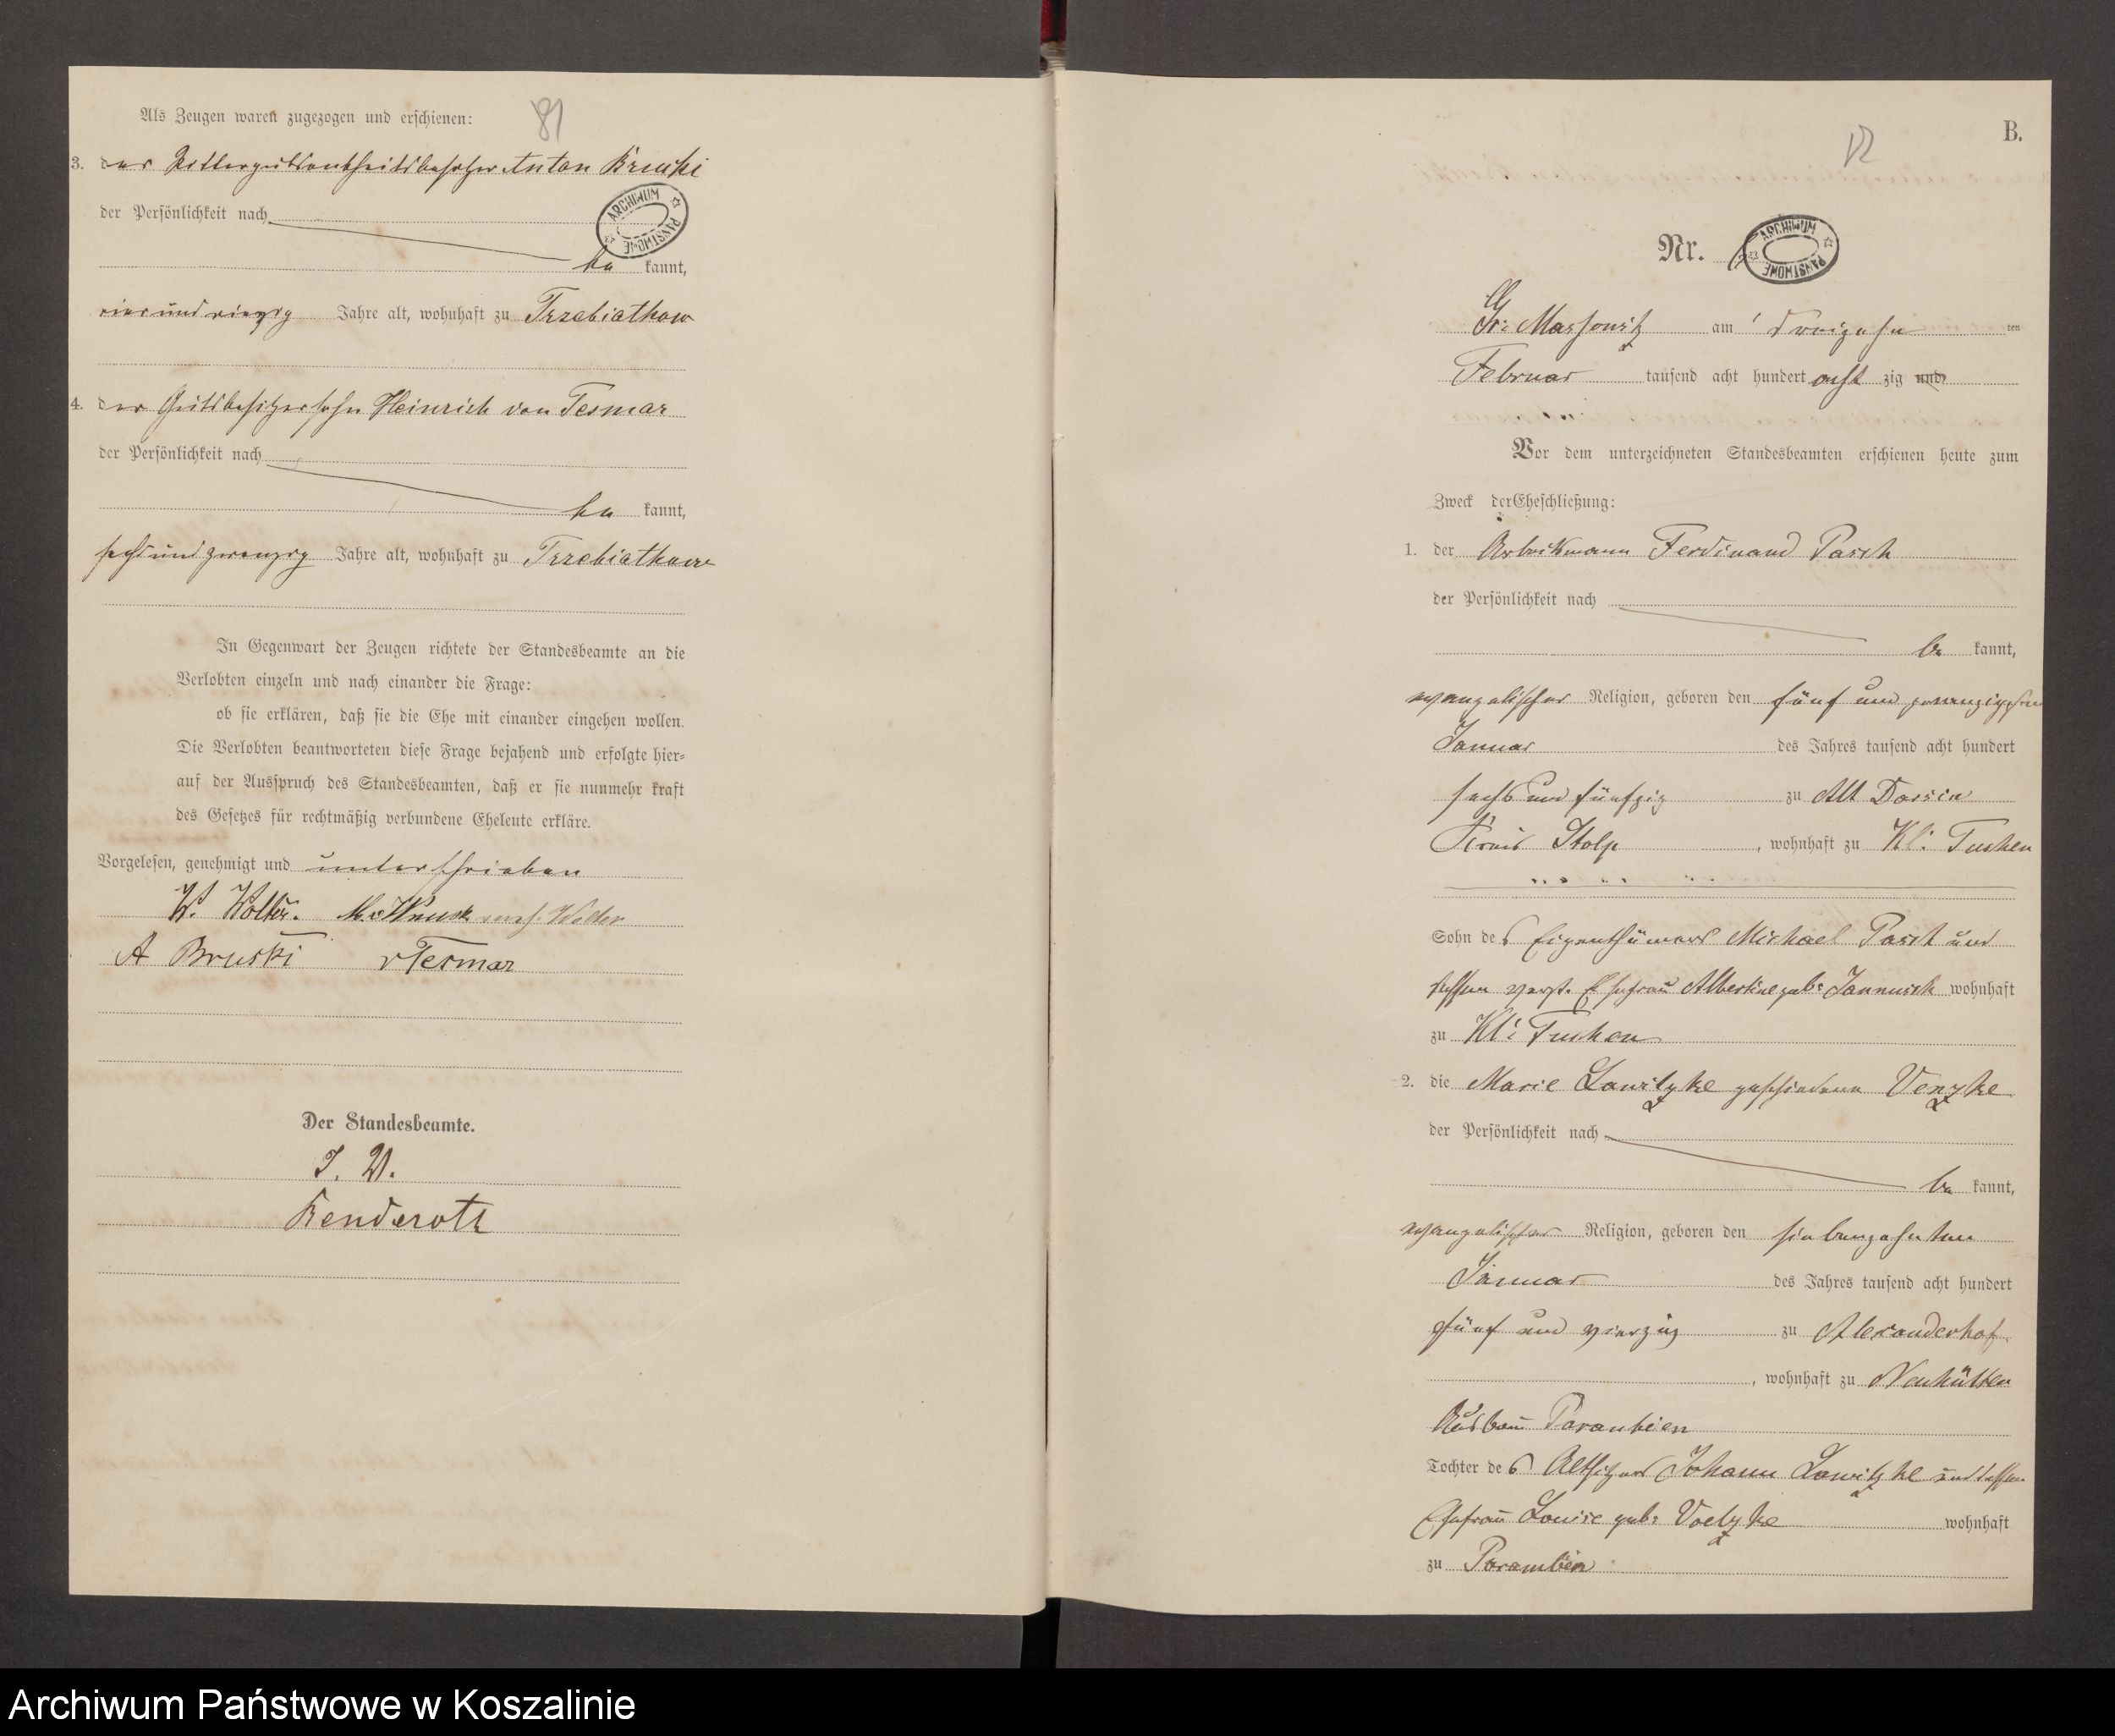 81
Als Zeugen waren zugezogen und erschienen:
3. der Rittergutsantheilsbesitzer Anton Bruski
der Persönlichkeit nach
be kannt,
vier und vierzig Jahre alt, wohnhaft zu Trzebiatkow
4. der Gutsbesitzersohn Heinrich von Tesmar
der Persönlichkeit nach
be kannt,
sechs und zwanzig Jahre alt, wohnhaft zu Trzebiatkow
In Gegenwart der Zeugen richtete der Standesbeamte an die
Verlobten einzeln und nach einander die Frage:
ob sie erklären, daß sie die Ehe mit einander eingehen wollen.
Die Verlobten beantworteten diese Frage bejahend und erfolgte hier-
auf der Ausspruch des Standesbeamten, daß er sie nunmehr kraft
des Gesetzes für rechtmäßig verbundene Eheleute erkläre.
Vorgelesen, genehmigt und unterschrieben
W. Wolter. Wolter
A Bruski v Tesmar
Der Standesbeamte.
I. V.
Benderoth
ARCHIWUM PAŃSTWOWE
B.
Nr.
ARCHIWUM PAŃSTWOWE
Gr: Massowitz am dreizehn ten
Februar tausend acht hundert acht zig und
Vor dem unterzeichneten Standesbeamten erschienen heute zum
Zweck der Eheschließung:
1. der Arbeitsmann Ferdinand Pasch
der Persönlichkeit nach
be kannt,
evangelischer Religion, geboren den fünf und zwanzigsten
Januar des Jahres tausend acht hundert
sechs und fünfzig zu Alt Darsin
Kreis Stolp, wohnhaft zu Kl: Tuchen
Sohn des Eigenthümers Michael Pasch und
dessen verst. Ehefrau Albertine geb: Jannusch wohnhaft
zu Kl: Tuchen
2. die Marie Lawitzke geschiedene Venzke
der Persönlichkeit nach
be kannt,
evangelischer Religion, geboren den siebenzehnten
Januar des Jahres tausend acht hundert
fünf und vierzig zu Alexanderhof
, wohnhaft zu Neuhütten
Ausbau
Tochter des Altsitzers Johann Lawitzke und dessen
Ehefrau Louise geb: Voelzke wohnhaft
zu
Archiwum Państwowe w Koszalinie